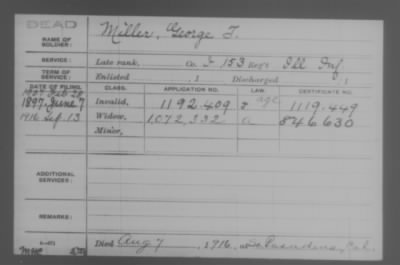 DEAD
NAME OF SOLDIER: Miller, George F.
SERVICE: Late rank, Co. I 153 Reg't Ill Inf
TERM OF SERVICE: Enlisted , 1 Discharged , 1
DATE OF FILING. CLASS. APPLICATION NO. LAW. CERTIFICATE NO.
1897 June 7 Invalid, 1192.409 age 1119.449
1916 Sep. 13 Widow, 1,072,332 a 846630
Minor,
ADDITIONAL SERVICES:
REMARKS:
Died Aug 7, 1916, at So Pasadena, Cal.